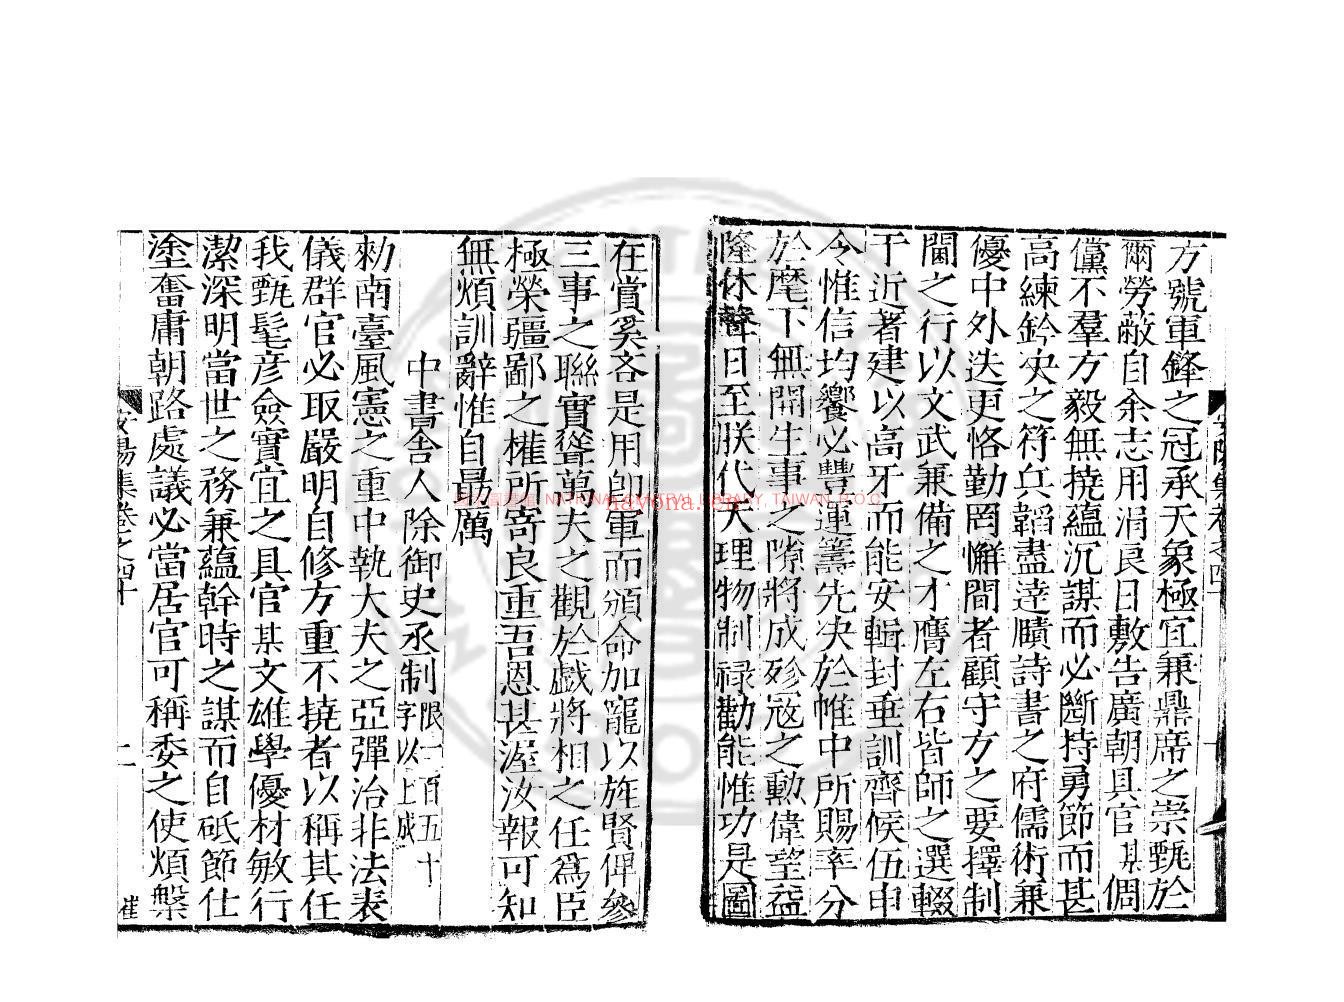 方號車鋒之冠承天象極宜兼鼎席之崇甄於
爾勞蔽自余志用涓良日敷告廣朝具官某倜
儻不羣方毅無撓蘊沉謀而必斷持勇節而甚
高練鈐決之符兵韜盡達賾詩書之府儒術兼
優中外迭更恪勤罔懈間者顧守方之要擇制
閫之行以文武兼備之才膺左右皆師之選輟
于近著建以高牙而能安輯封垂訓齊候伍申
令惟信均饗必豐運籌先决於帷中所賜率分
於麾下無開生事之隙將成殄冦之勳偉望益
隆休聲日至朕代天理物制禄勸能惟功是圖
在賞奚吝是用即軍而頒命加寵以旌賢俾參
三事之聯實聳萬夫之觀於戲將相之任爲臣
極榮疆鄙之權所寄良重吾恩甚渥汝報可知
無煩訓辭惟自勗厲
中書舍人除御史丞制限一百五十字以上成
勑南臺風憲之重中執大夫之亞彈治非法表
儀群官必取嚴明自修方重不撓者以稱其任
我甄髦彦僉實宜之具官某文雄學優材敏行
潔深明當世之務兼蘊幹時之謀而自砥節仕
塗奮庸朝路處議必當居官可稱委之使煩槃
安陽集卷之四十
二
崔
國家圖書館 NATIONAL CENTRAL LIBRARY, TAIWAN, R.O.C